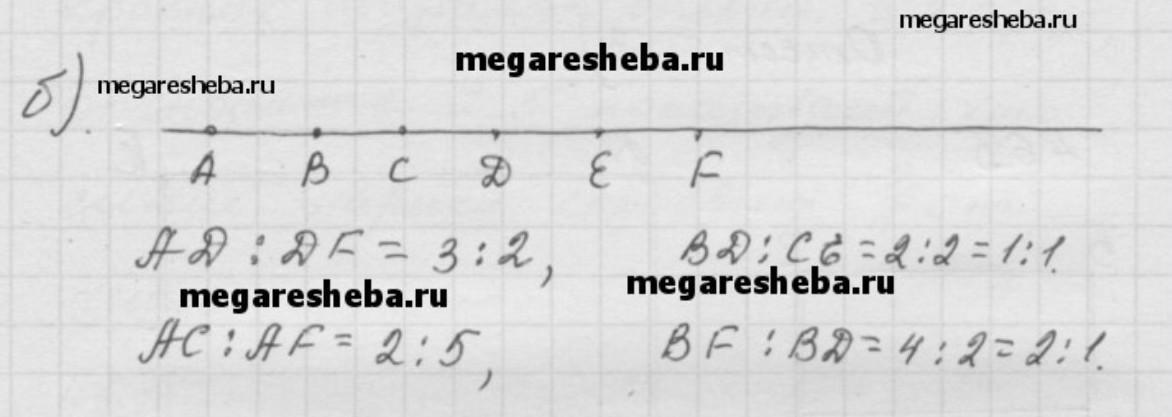 megaresheba.ru
megaresheba.ru
б). megaresheba.ru
A B C D E F
AD : DF = 3 : 2, BD : CE = 2 : 2 = 1 : 1.
megaresheba.ru megaresheba.ru
AC : AF = 2 : 5, BF : BD = 4 : 2 = 2 : 1.